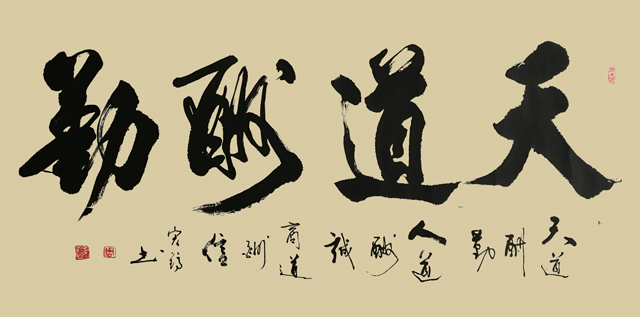 天道酬勤
天道酬勤 人道酬誠 商道酬信
书